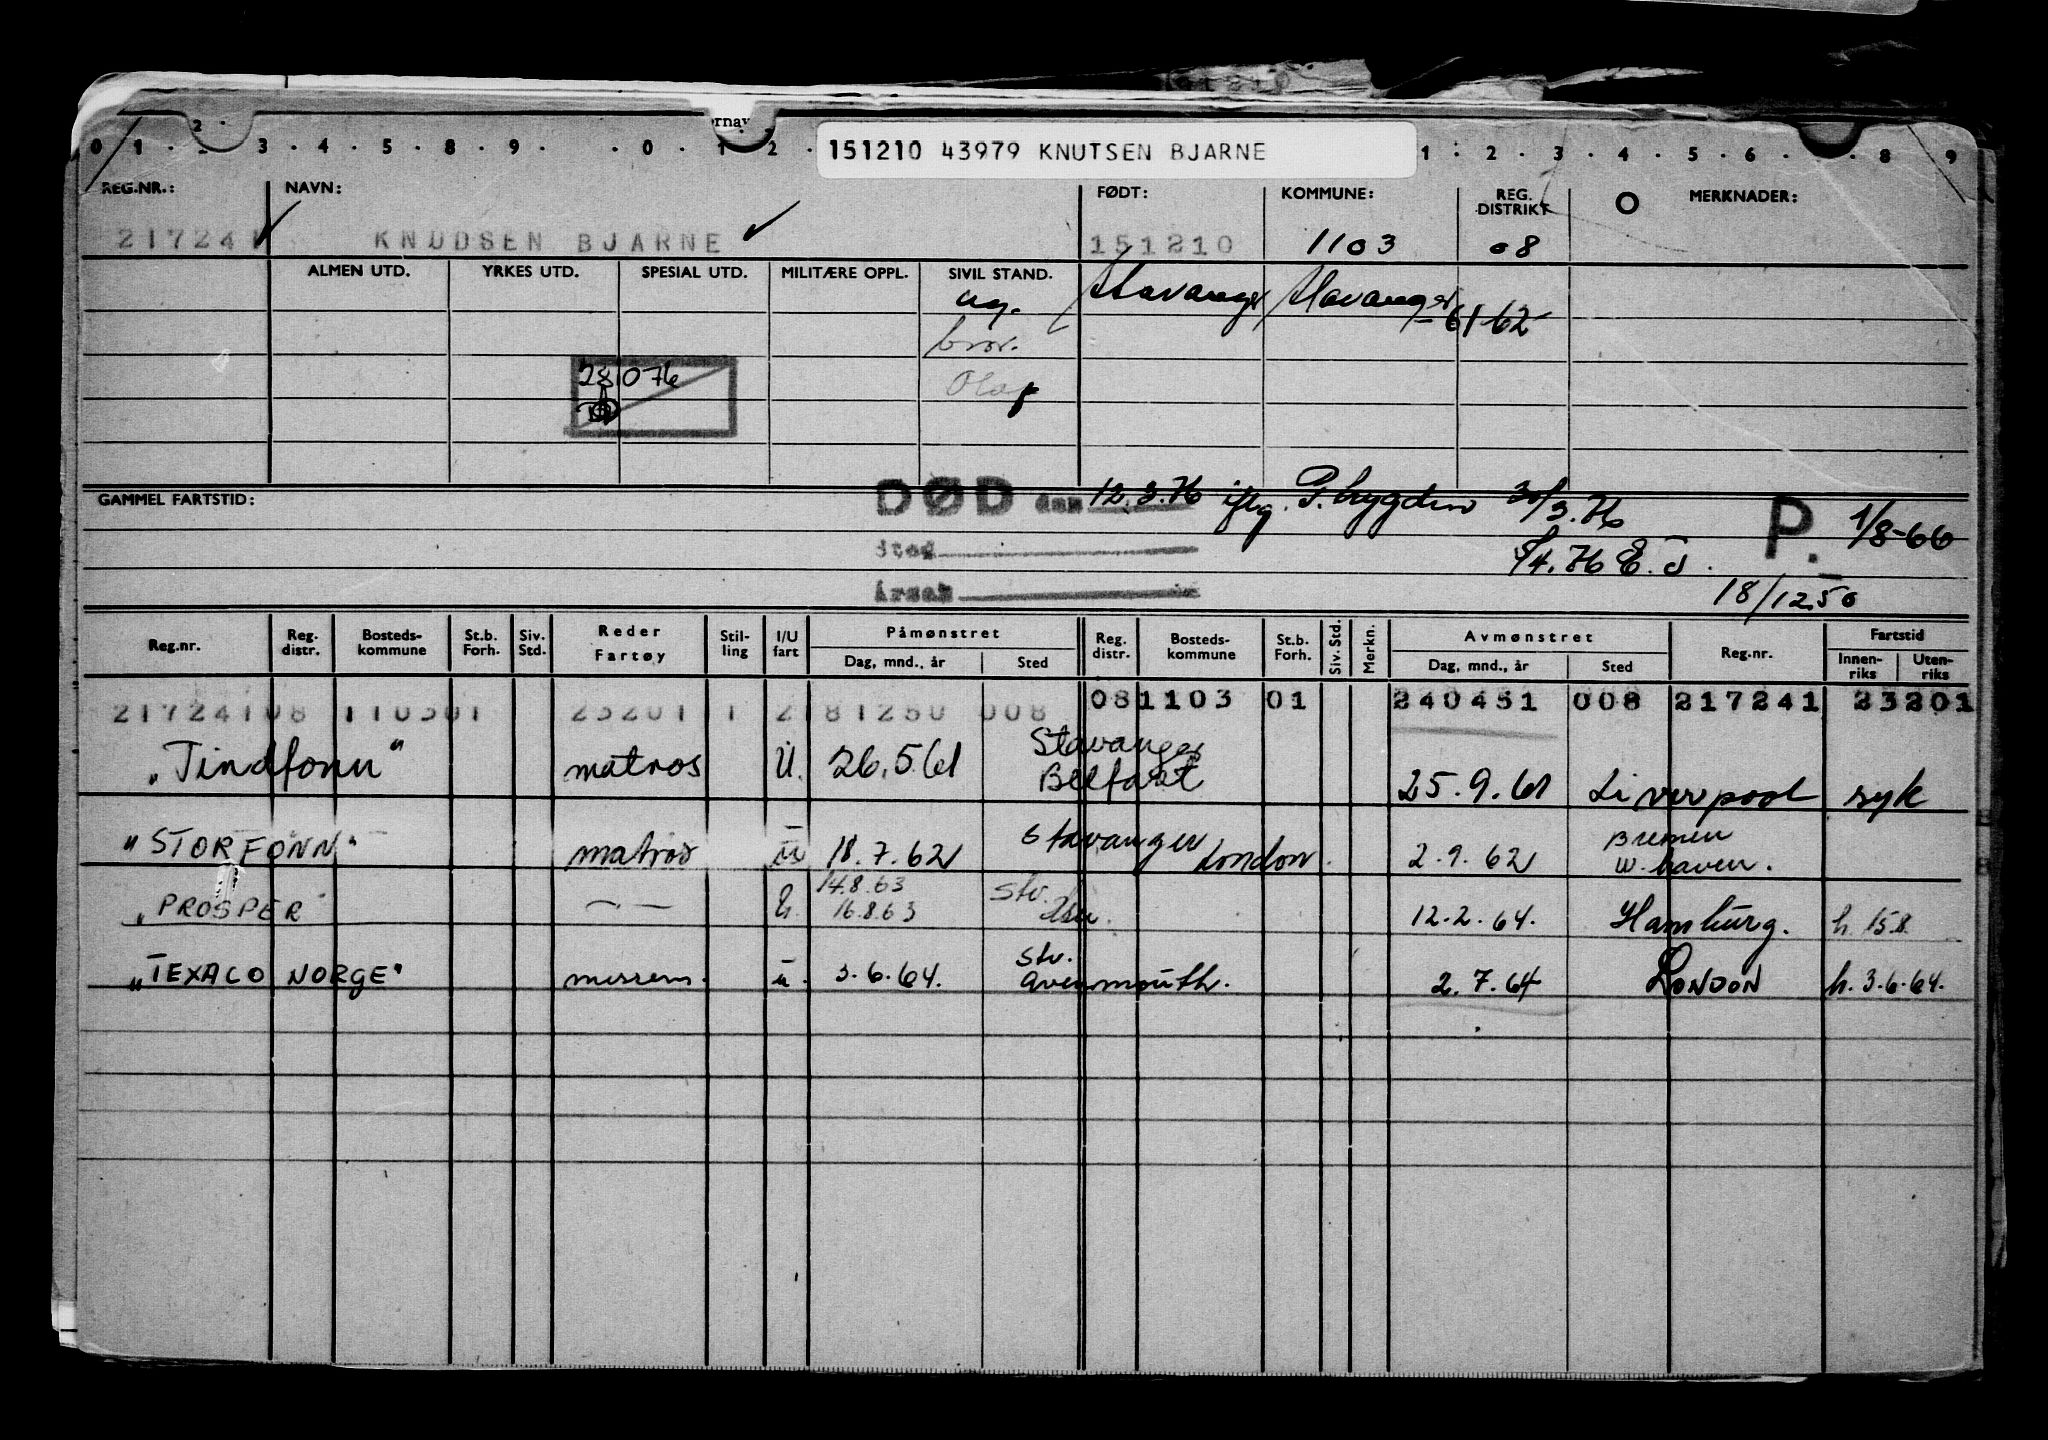 151210 43979 KNUTSEN BJARNE
0 1 . 2 . 3 . 4 . 5 . 8 . 9 . . 0 . 1 2 . 1 . 2 . 3 . 4 . 5 . 6 . . 8 9
REG.NR.: NAVN: FØDT: KOMMUNE: REG. DISTRIKT MERKNADER:
217241 KNUDSEN BJARNE 151210 1103 08
ALMEN UTD. YRKES UTD. SPESIAL UTD. MILITÆRE OPPL. SIVIL STAND.
ug. Stavanger Stavanger
- 61-62
bror.
Olaf
281076
GAMMEL FARTSTID: DØD den 12.3.76 iflg. P. trygden 30/3.76
P. 1/8-66
Sted
5/4.76 E.J.
Årsak
18/12 50
Reg.nr. Reg. distr. Bosteds- kommune St.b. Forh. Siv. Std. Reder Fartøy Stil- ling I/U fart Påmønstret Reg. distr. Bosteds- kommune St.b. Forh. Siv. Std. Merkn. Avmønstret Reg.nr. Fartstid
Dag, mnd., år Sted Dag, mnd., år Sted Innen- riks Uten- riks
217241 08 1103 01 23201 1 2 81250 008 08 1103 01 240451 008 217241 23201
"Tindfonn" matros U. 26.5.61 Stavanger Belfast 25.9.61 Liverpool syk
"STORFONN" matros u 18.7.62 Stavanger London. 2.9.62 Bremen W. haven.
"PROSPER" — — U. 14.8.63 16.8.63 Stv. 12.2.64. Hamburg. h. 15.8.
"TEXACO NORGE" messem. u. 3.6.64. Stv. Avenmouth. 2.7.64 LONDON h. 3.6.64.